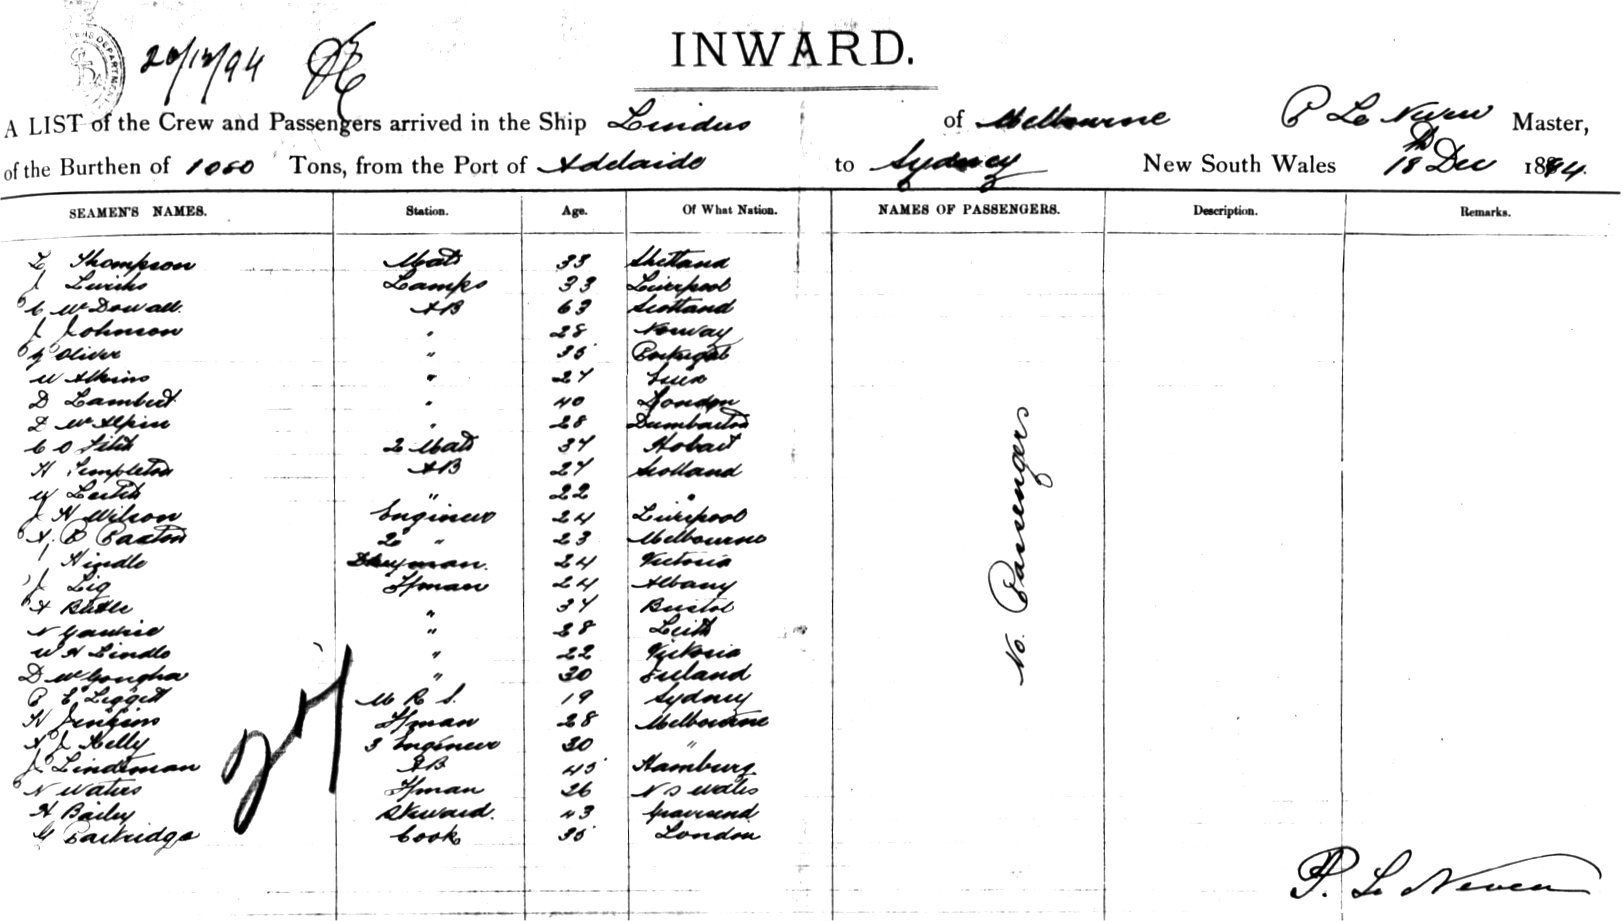 20/12/94
INWARD.
A LIST of the Crew and Passengers arrived in the Ship Lindus of Melbourne P Le Neveu Master,
of the Burthen of 1060 Tons, from the Port of Adelaide to Sydney New South Wales 18th Dec 1894.
SEAMEN'S NAMES. Station. Age. Of What Nation. NAMES OF PASSENGERS. Description. Remarks.
Thompson Mate 33 Shetland
J Lewis Lamps 33 Liverpool
C McDowall. AB 63 Scotland
J Johnson " 28 Norway
G Oliver " 35 Portugal
W Atkins " 27
D Lambert " 40 London
McAlpin " 28 Dumbarton
C O 2 Mate 37 Hobart
H Templeton AB 27 Scotland
W " 22 "
J H Wilson Engineer 24 Liverpool
A. B Paxton 2 " 23 Melbourne
Hindle 24 Victoria
J Fman 24 Albany
A Butle " 37 Bristol
N " 28 Leith
W H Lindle " 22 Victoria
D " 30 Ireland
P E Liggett M R S. 19 Sydney
H Jenkins Fman 28 Melbourne
A J Kelly 3 Engineer 30 "
J Lindeman AB 45 Hamburg
N Waters Fman 26 N S Wales
H Bailey Steward. 43 Gravesend
G Partridge Cook 35 London
No Passengers
27
P. Le Neveu